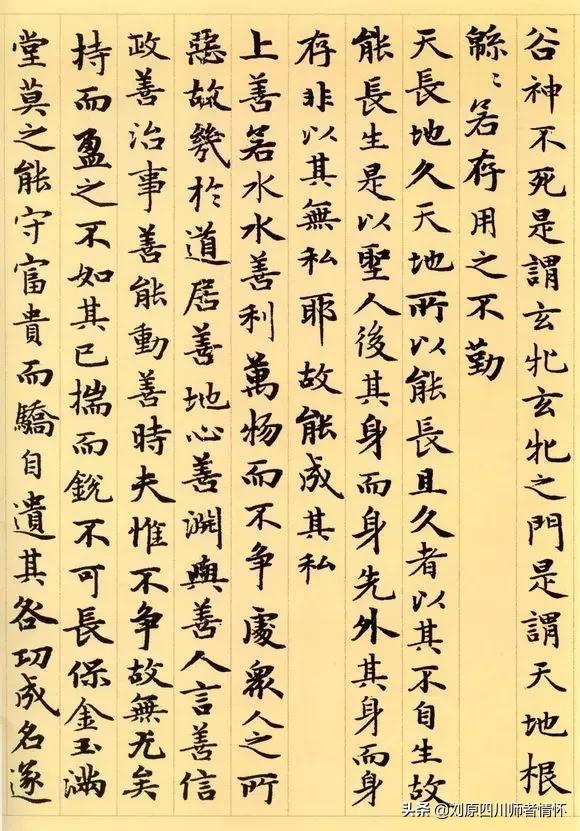 谷神不死是謂玄牝玄牝之門是謂天地根
綿〻若存用之不勤
天長地久天地所以能長且久者以其不自生故
能長生是以聖人後其身而身先外其身而身
存非以其無私耶故能成其私
上善若水水善利萬物而不争處衆人之所
惡故幾於道居善地心善淵與善人言善信
政善治事善能動善時夫惟不争故無尤矣
持而盈之不如其已揣而銳不可長保金玉滿
堂莫之能守富貴而驕自遺其咎功成名遂
头条 @刘原四川师者情怀